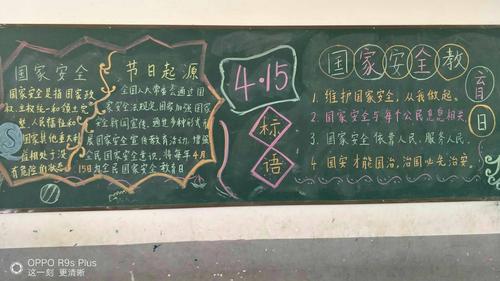 国家安全
国家安全是指国家政
权、主权、统一和领土完
整、人民福祉和
国家其他重大利
益相对处于没
有危险的状态
节日起源
全国人大常委会通过国
家安全法规定,国家加强国家
安全新闻宣传,通过多种形式开
展国家安全宣传教育活动,增强
全民国家安全意识,将每年4月
15日为全民国家安全教育日
4·15
标
语
国家安全教
育
日
1. 维护国家安全,从我做起。
2. 国家安全与每个公民息息相关。
3. 国家安全依靠人民,服务人民。
4. 国安才能国治,治国必先治安。
OPPO R9s Plus
这一刻 更清晰